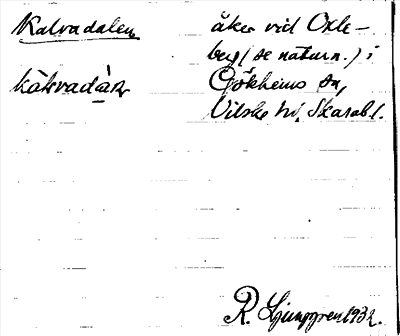 Kalvadalen
åker vid Oxle-
berg (se naturn.) i
kàlvadàɳ
Gökhems sn,
Vilske hd, Skarab l.
R. Ljunggren 1932.